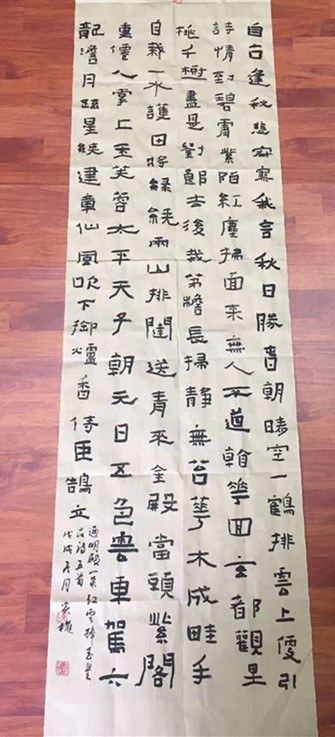 自古逢秋悲寂寥我言秋日勝春朝晴空一鶴排雲上便引
詩情到碧霄紫陌紅塵拂面來無人不道看華回玄都觀里
桃千樹盡是劉郎去後栽茅檐長掃靜無苔華木成畦手
自栽一水護田將綠繞兩山排闥送青來金殿當頭紫閣
重僊人掌上玉芙蓉太平天子朝元日五色雲車駕六
龍澹月疏星繞建章仙風吹下御爐香侍臣鵠立
通明殿一朵紅雲捧玉皇
古詩五首
戊戌冬月